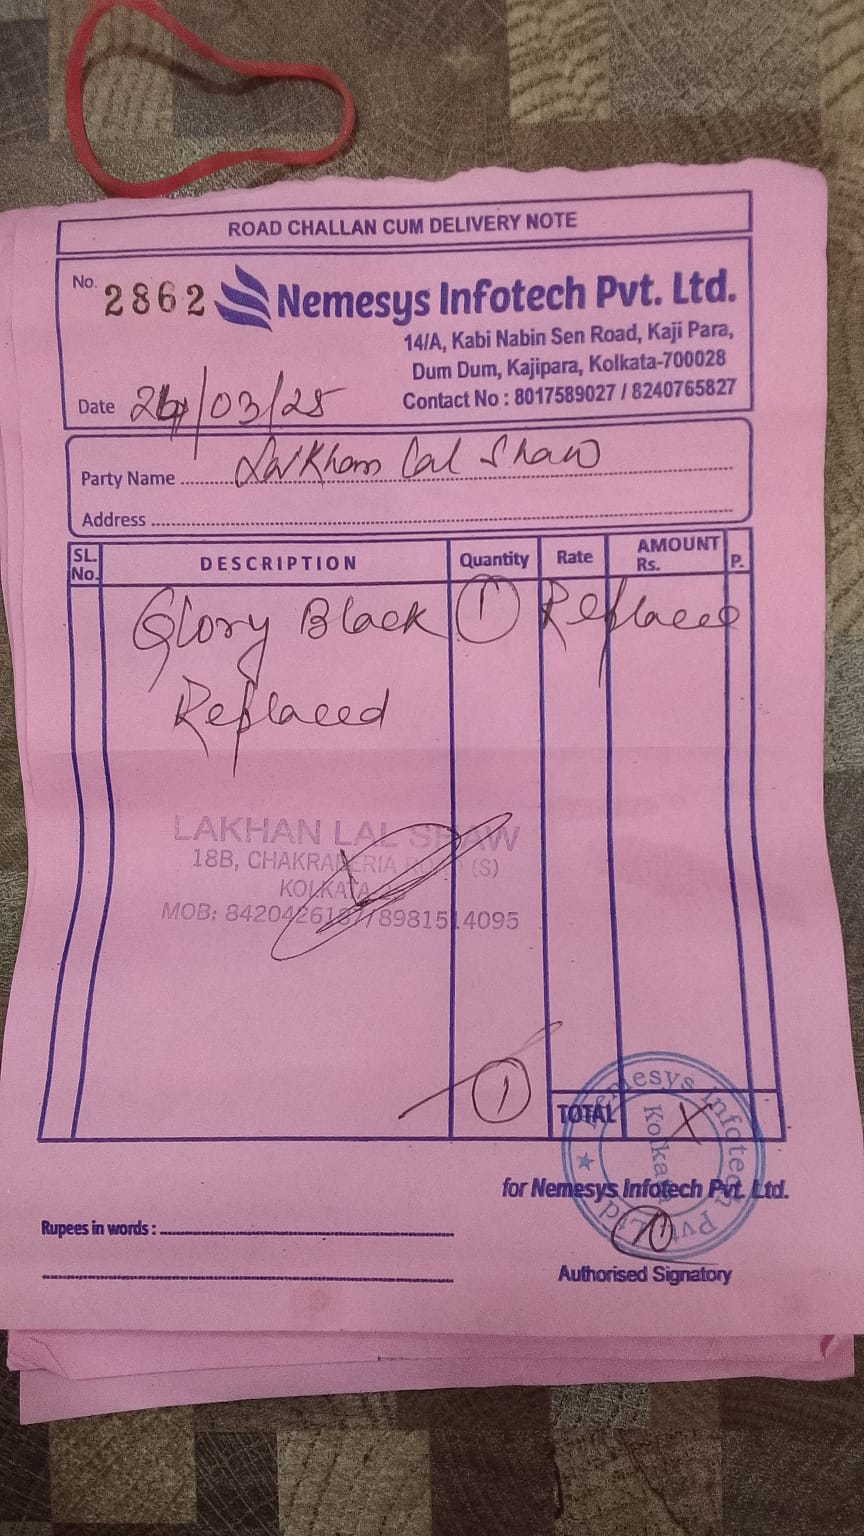 ROAD CHALLAN CUM DELIVERY NOTE
No. 2862 Nemesys Infotech Pvt. Ltd.
14/A, Kabi Nabin Sen Road, Kaji Para,
Dum Dum, Kajipara, Kolkata-700028
Contact No : 8017589027 / 8240765827
Date /03/25
Party Name Lal Shaw
Address
SL. No. DESCRIPTION Quantity Rate AMOUNT Rs. P.
Glory Black 1 Replaced
Replaced
LAKHAN LAL SHAW
18B, CHAKRABERIA (S)
KOLKATA
MOB: 8420426187/8981514095
1
TOTAL X
Nemesys Infotech Pvt. Ltd.
Kolkata
for Nemesys Infotech Pvt. Ltd.
Rupees in words :
Authorised Signatory